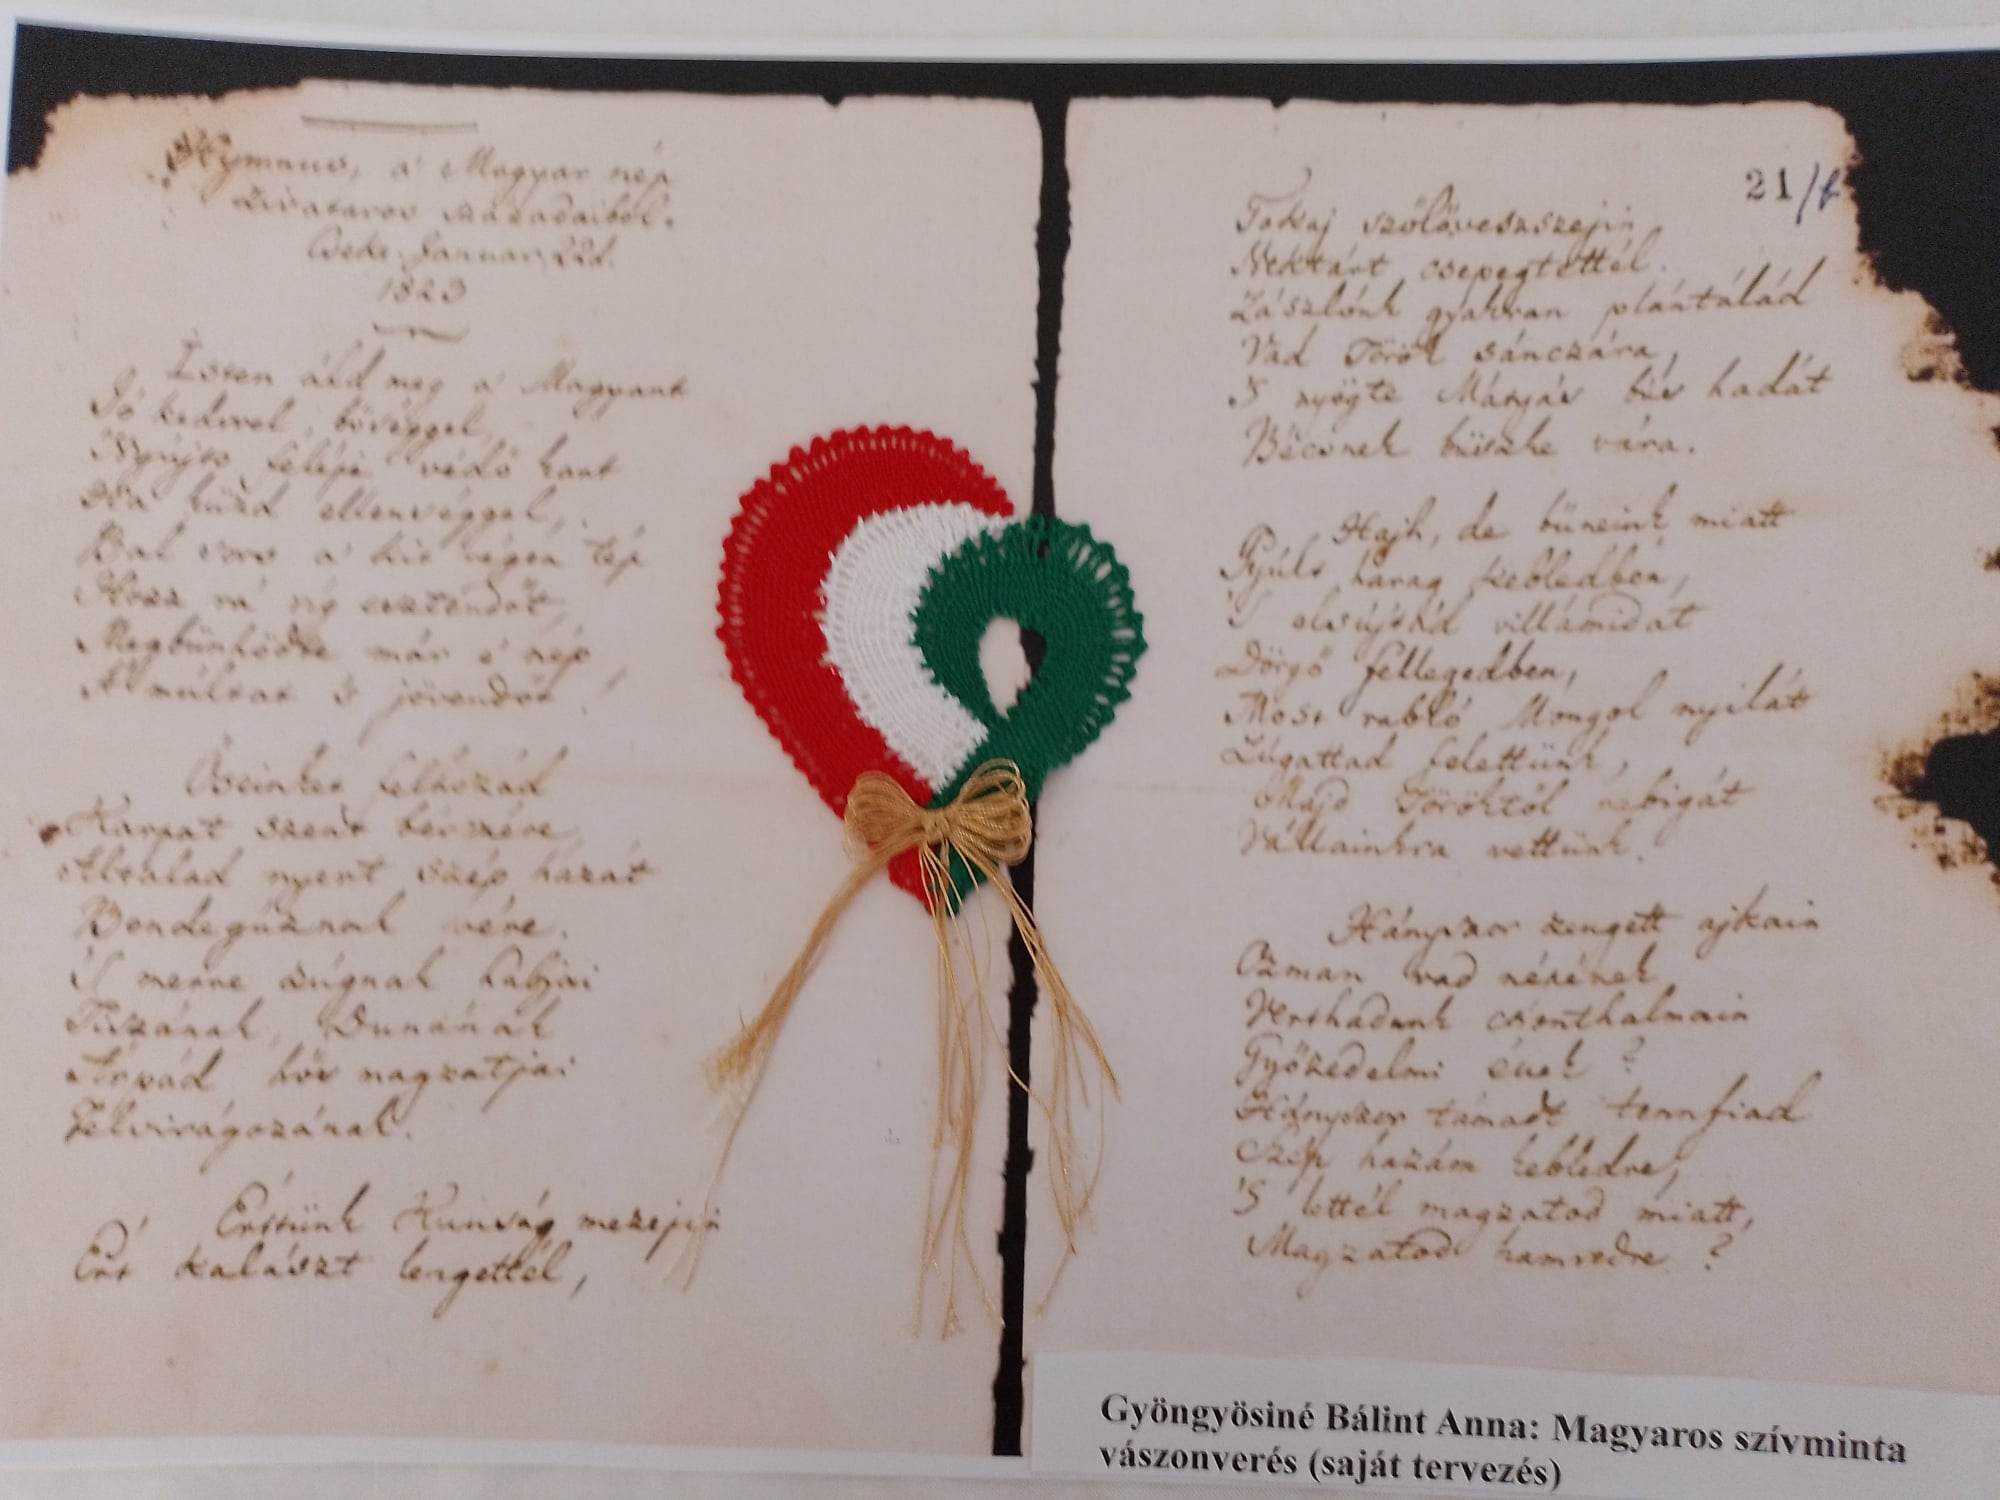 Hymnus, a' Magyar nép
zivataros századaiból.
Cseke Januar 22d.
1823
Isten áld meg a' Magyart
Jó kedvvel, bőséggel,
Nyújts feléje védő kart
Ha küzd ellenséggel,
Bal sors a' kit régen tép
Hozz rá víg esztendőt,
Megbűnhődte már e' nép
A' múltat 's jövendőt!
Őseinket felhozád
Kárpát szent bérczére
Általad nyert szép hazát
Bendegúznak vére.
'S merre zúgnak habjai
Tiszának, Dunának
Árpád hős magzatjai
Felvirágozának.
Értünk Kunság mezejein
Ért kalászt lengettél,
21/b
Tokaj szőlővesszejin
Nektárt csepegtettél.
Zászlónk gyakran plántálád
Vad Török sánczára,
'S nyögte Mátyás bús hadát
Bécsnek büszke vára.
Hajh, de bűneink miatt
Gyúlt harag kebledben,
'S elsújtád villámidat
Dörgő fellegedben,
Most rabló Mongol nyilát
Zúgattad felettünk,
Majd Töröktől rabigát
Vállainkra vettünk.
Hányszor zengett ajkain
Ozman vad népének
Vert hadunk csonthalmain
Győzedelmi ének?
Hányszor támadt tennfiad
Szép hazám kebledre,
'S lettél magzatod miatt,
Magzatod hamvedre?
Gyöngyösiné Bálint Anna: Magyaros szívminta
vászonverés (saját tervezés)